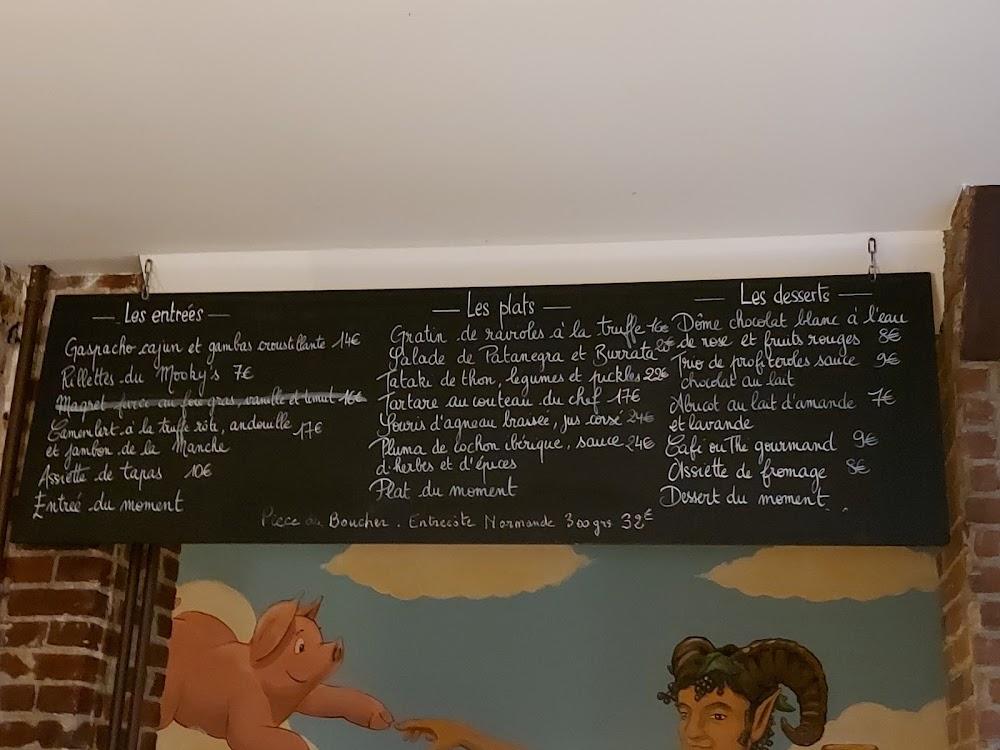 Les entreés
Gaspacho cajun et gambas croustillante 14€
Rillettes du Mooky's 7€
Magret au foie gras, vanille et timut 16€
Camembert à la truffe rôti, andouille 17€
et jambon de la Manche
Assiette de tapas 10€
Entreé du moment
Les plats
Gratin de ravioles à la truffe 16€
Salade de Patanegra et Burrata 20€
Tataki de thon, legumes et puckles 22€
Tartare au couteau du chef 17€
Souris d'agneau braisée, jus corsé 24€
Pluma de cochon ibérique, sauce 24€
d'herbes et d'épices
Plat du moment
Les desserts
Dôme chocolat blanc à l'eau
de rose et fruits rouges 8€
Trio de profiteroles sauce 9€
chocolat au lait
Abricot au lait d'amande 7€
et lavande
Café ou Thé gourmand 9€
Assiette de fromage 8€
Dessert du moment
Piece du Boucher. Entrecôte Normande 300grs 32€